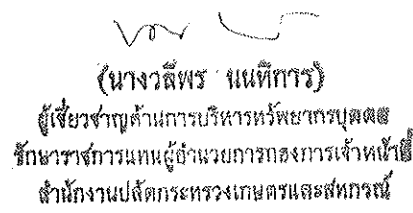 (นางวลีพร นนทิการ)
ผู้เชี่ยวชาญด้านการบริหารทรัพยากรบุคคล
รักษาราชการแทนผู้อำนวยการกองการเจ้าหน้าที่
สำนักงานปลัดกระทรวงเกษตรและสหกรณ์